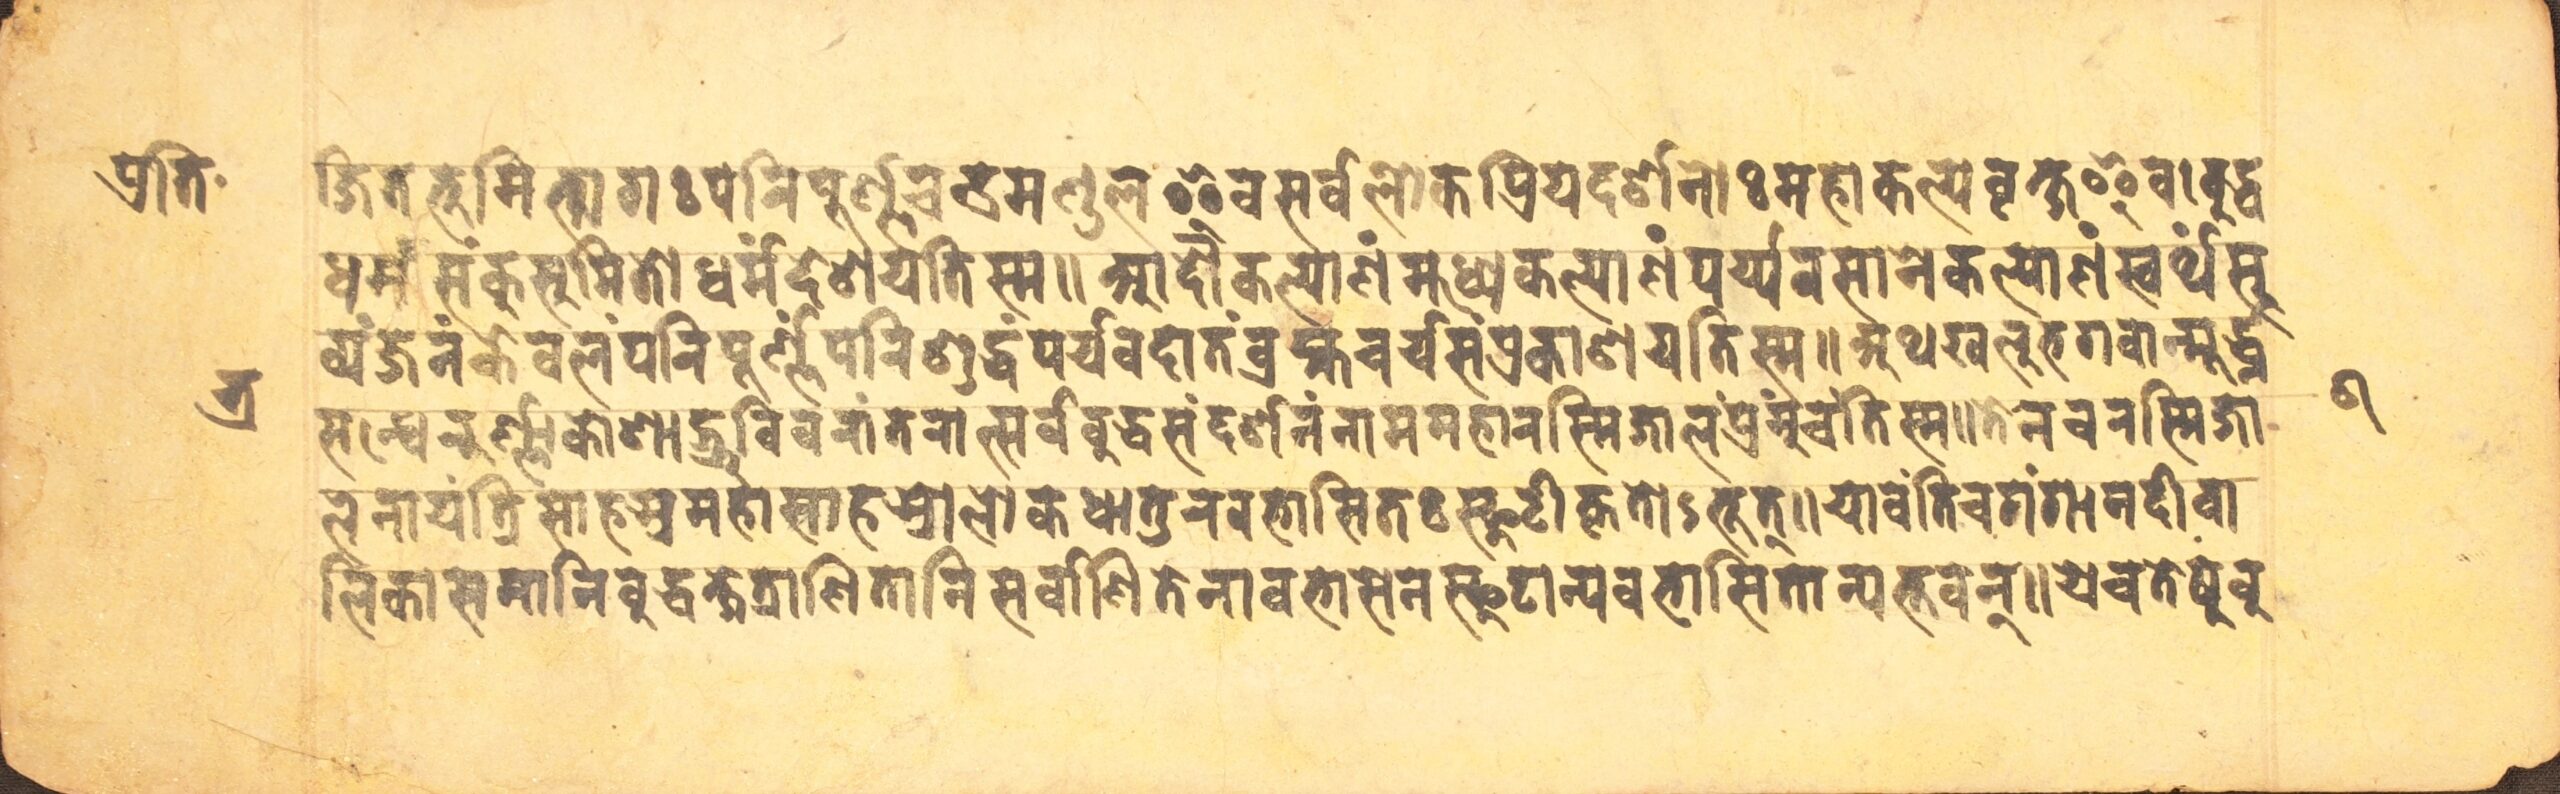 प्रति
जितभूमिभागः परिपूर्ण्णचन्द्रमण्डल इव सर्वलोकप्रियदर्शनोः महाकल्पवृक्ष इव। बुद्ध
धर्मसंकुसुमितो धर्मं देशयति स्म॥ आदौ कल्याणं मध्यकल्याणं पर्य्यवसानेकल्याणं स्वर्थं सु
व्यंजनं केवलं परिपूर्ण्णं परिशुद्धं पर्यवदातं ब्रह्मचर्यसंप्रकाशयति स्म॥ अथ खलु भगवान्मूर्द्ध
सन्धेरूर्ण्णाकोशाद्भ्रूविवरांतरात्सर्वबुद्धसंदर्शनंनाममहारस्मिजालं प्रंमुचंति स्म॥ तेन च रस्मिजा
लेनायं त्रिसाहस्रमहासाहस्रो लोकधातुरवभासितः स्फुटीकृतोऽभूत्॥ यावंति च गंगानदीवा
लिकासमानि बुद्धक्षेत्राणि तानि सर्वाणि तेनावभासेन स्फुटान्यवभासितान्यभूवन्॥ ये च तेषु बु